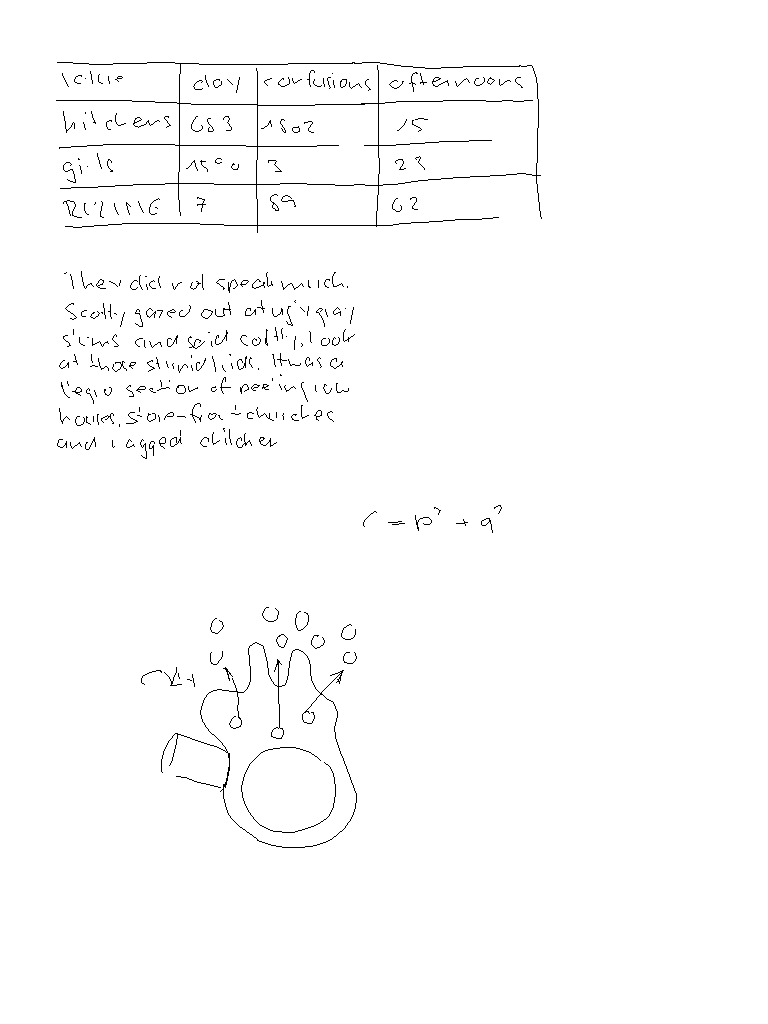 day confusions afternoons
kitchens 683 1802 15
girls 1590 3 23
7 89 62
They did not speak much.
Scotty gazed out at ugly gray
slums and said softly, Look
at those stupid kids. It was a
Negro section of peeling row
houses, store-front churches
and ragged children
r = p² + q²
Ca²⁺